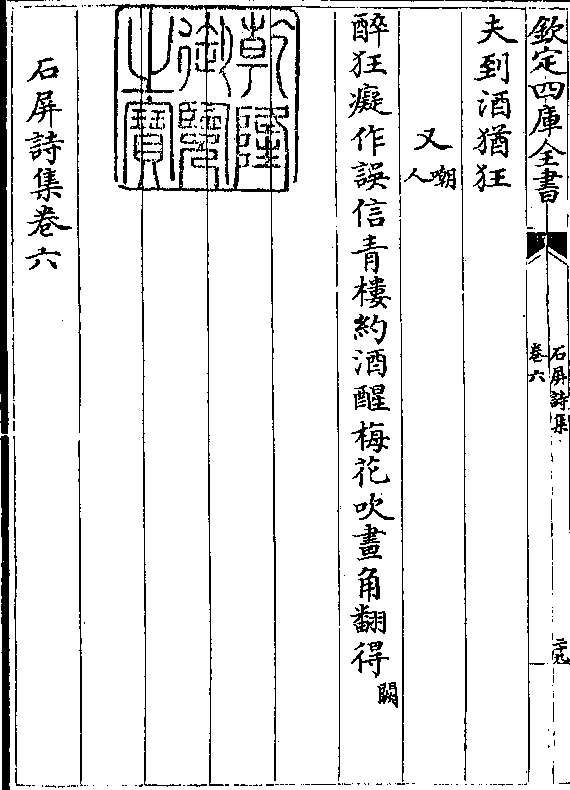 欽定四庫全書
石屏詩集
卷六
二十九
夫到酒猶狂
又嘲人
醉狂癡作誤信青樓約酒醒梅花吹畫角翻得闕
乾隆御覽之寶
石屏詩集卷六